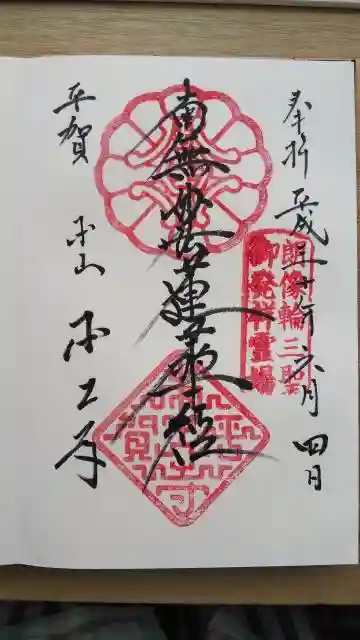 奉拝 平成三十年六月四日
朗像輪三聖
御発祥霊場
南無妙法蓮華経
平賀 本山 本土寺